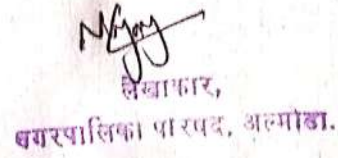 लेखाकार,
नगरपालिका परिषद, अल्मोडा.